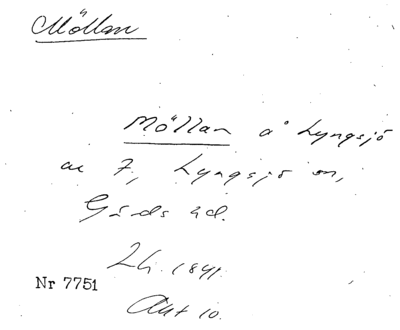 Möllan
Möllan å Lyngsjö
nr 7, Lyngsjö sn,
Gärds hd.
Lh. 1841.
Nr 7751
Akt 10.